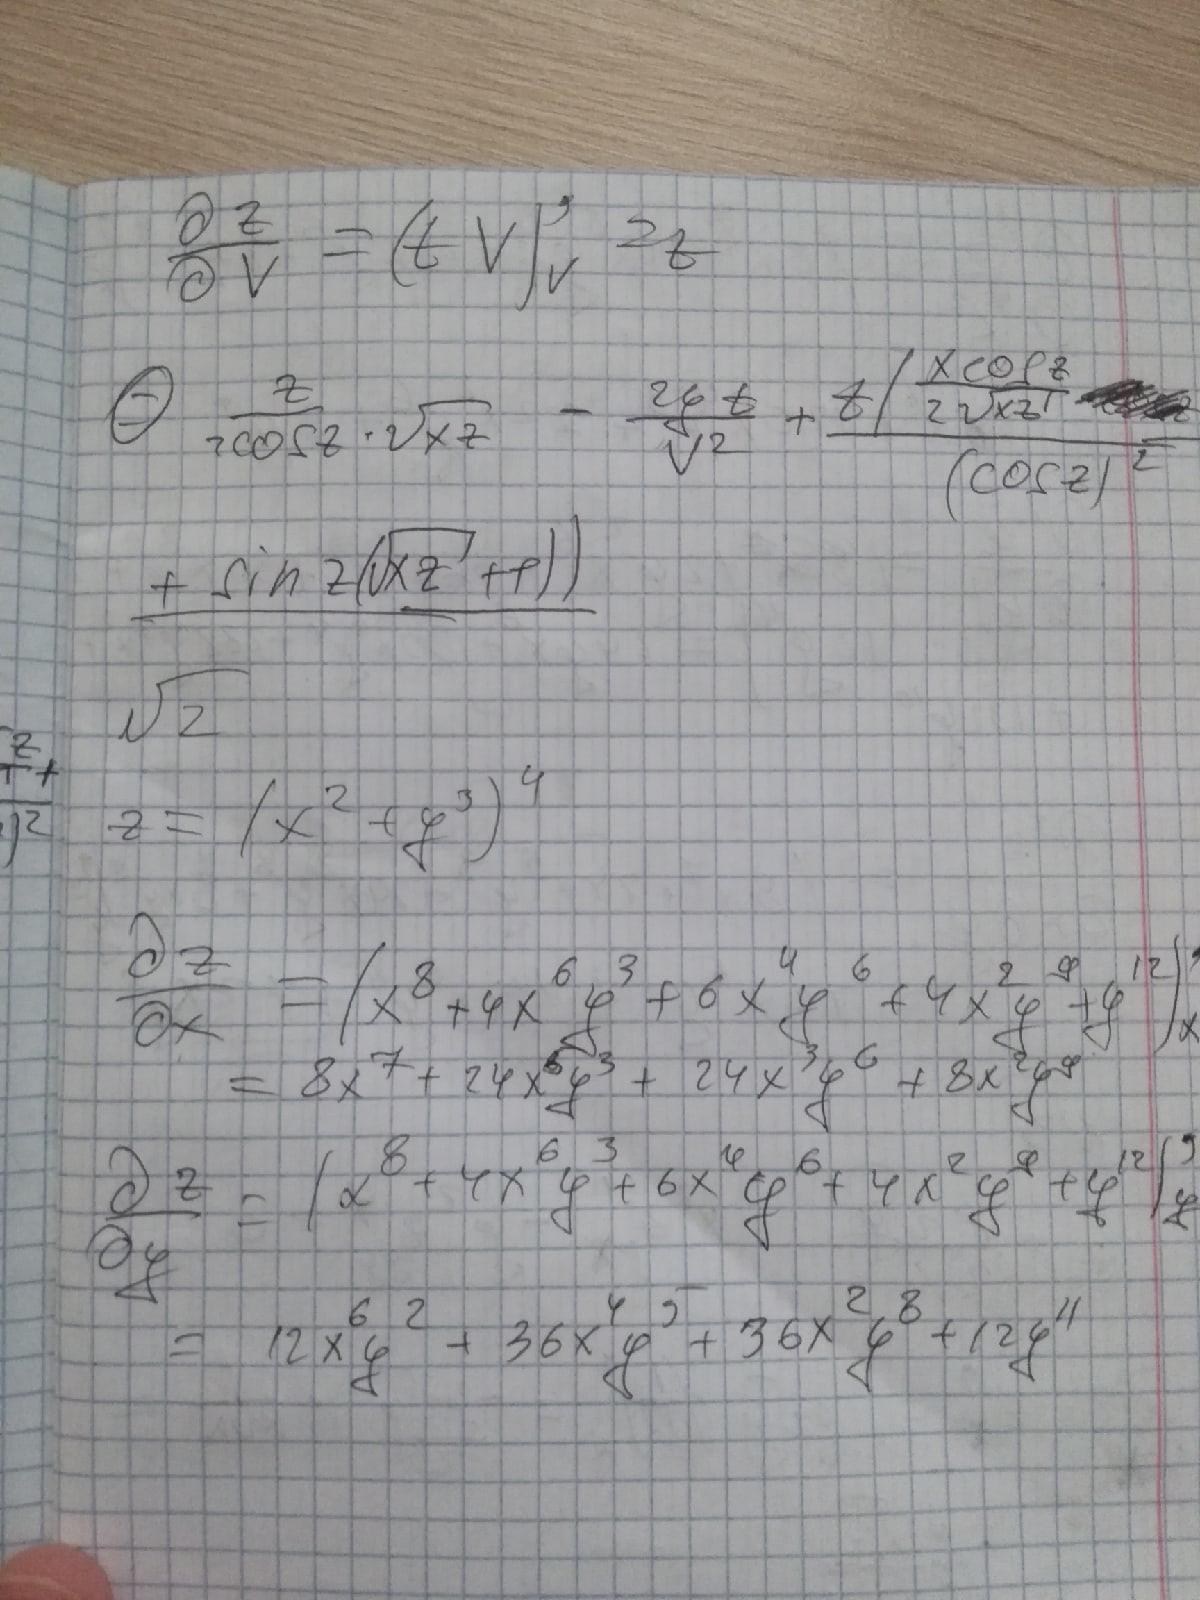 ∂z/∂V = (t V)'_V = t
⊖ z/(2cosz · √xz) - 2yt/V² + t((xcosz)/(2√xz)
(cosz)²
+ sin z(√xz + 1))
√2
z = (x² + y³)⁴
∂z/∂x = (x⁸ + 4x⁶y³ + 6x⁴y⁶ + 4x²y⁹ + y¹²)'ₓ
= 8x⁷ + 24x⁵y³ + 24x³y⁶ + 8x²y⁹
∂z/∂y = (x⁸ + 4x⁶y³ + 6x⁴y⁶ + 4x²y⁹ + y¹²)'_y
= 12x⁶y² + 36x⁴y⁵ + 36x²y⁸ + 12y¹¹